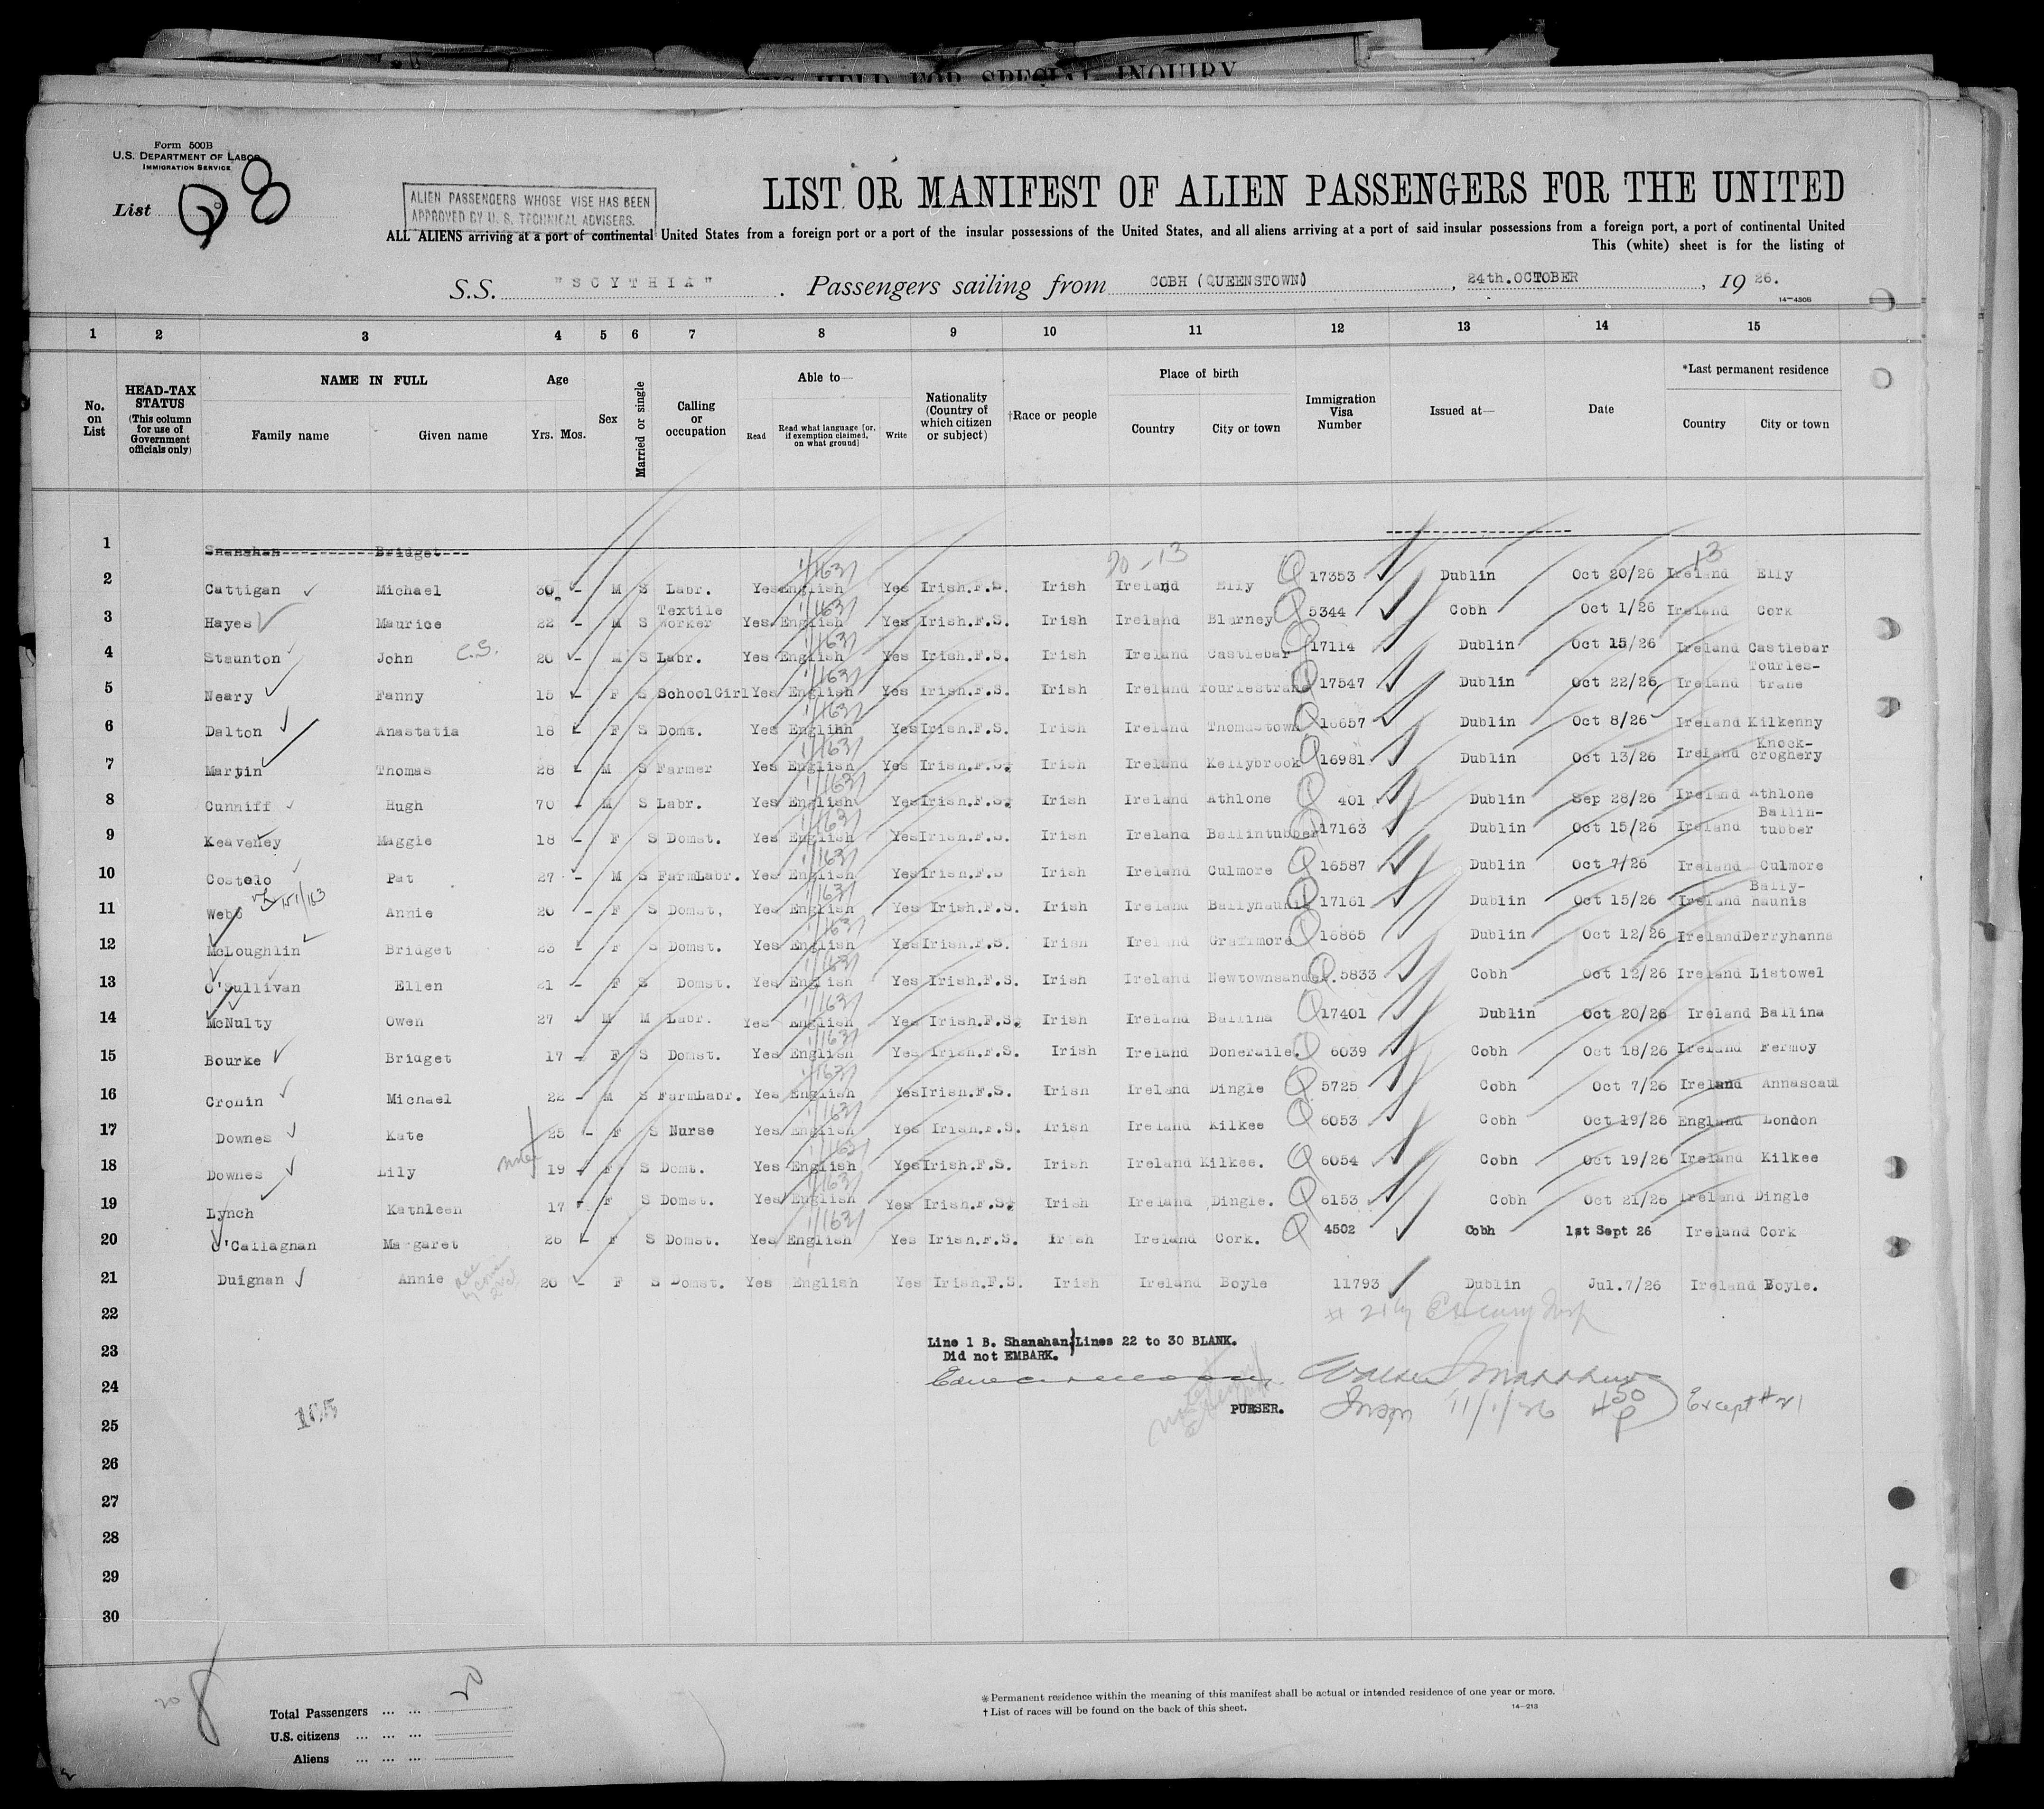 HELD FOR SPECIAL INQUIRY
Form 500B
U.S. DEPARTMENT OF LABOR
IMMIGRATION SERVICE
List 98
ALIEN PASSENGERS WHOSE VISE HAS BEEN
APPROVED BY U. S. TECHNICAL ADVISERS.
LIST OR MANIFEST OF ALIEN PASSENGERS FOR THE UNITED
ALL ALIENS arriving at a port of continental United States from a foreign port or a port of the insular possessions of the United States, and all aliens arriving at a port of said insular possessions from a foreign port, a port of continental United
This (white) sheet is for the listing of
S.S. "SCYTHIA" . Passengers sailing from COBH (QUEENSTOWN) , 24th.OCTOBER , 19 26.
14—430B
1 2 3 4 5 6 7 8 9 10 11 12 13 14 15
No. on List
HEAD-TAX STATUS (This column for use of Government officials only)
NAME IN FULL
Family name Given name
Age
Yrs. Mos.
Sex
Married or single
Calling or occupation
Able to—
Read Read what language [or, if exemption claimed, on what ground] Write
Nationality (Country of which citizen or subject)
†Race or people
Place of birth
Country City or town
Immigration Visa Number
Issued at—
Date
*Last permanent residence
Country City or town
1 Shanahan Bridget
20-13 13
2 Cattigan Michael 30 - M S Labr. Yes English Yes Irish.F.S. Irish Ireland Elly 17353 Dublin Oct 20/26 Ireland Elly
3 Hayes Maurice 22 - M S Textile Worker Yes English Yes Irish.F.S. Irish Ireland Blarney 5344 Cobh Oct 1/26 Ireland Cork
4 Staunton John C.S. 20 - M S Labr. Yes English Yes Irish.F.S. Irish Ireland Castlebar 17114 Dublin Oct 15/26 Ireland Castlebar
5 Neary Fanny 15 - F S SchoolGirl Yes English Yes Irish.F.S. Irish Ireland Tourlestrane 17547 Dublin Oct 22/26 Ireland Tourles-trane
6 Dalton Anastatia 18 - F S Doms. Yes English Yes Irish.F.S. Irish Ireland Thomastown 16657 Dublin Oct 8/26 Ireland Kilkenny
7 Martin Thomas 28 - M S Farmer Yes English Yes Irish.F.S. Irish Ireland Kellybrook 16981 Dublin Oct 13/26 Ireland Knock-croghery
8 Cunniff Hugh 70 - M S Labr. Yes English Yes Irish.F.S. Irish Ireland Athlone 401 Dublin Sep 28/26 Ireland Athlone
9 Keaveney Maggie 18 - F S Domst. Yes English Yes Irish.F.S. Irish Ireland Ballintubber 17163 Dublin Oct 15/26 Ireland Ballin-tubber
10 Costelo Pat 27 - M S FarmLabr. Yes English Yes Irish.F.S Irish Ireland Culmore 16587 Dublin Oct 7/26 Ireland Culmore
11 Webb Annie 20 - F S Domst, Yes English Yes Irish.F.S. Irish Ireland Ballyhaunis 17161 Dublin Oct 15/26 Ireland Bally-haunis
12 McLoughlin Bridget 23 - F S Domst. Yes English Yes Irish.F.S. Irish Ireland Graffmore 16865 Dublin Oct 12/26 Ireland Derryhanna
13 O'Sullivan Ellen 21 - F S Domst. Yes English Yes Irish.F.S. Irish Ireland Newtownsandes. 5833 Cobh Oct 12/26 Ireland Listowel
14 McNulty Owen 27 - M M Labr. Yes English Yes Irish.F.S. Irish Ireland Ballina 17401 Dublin Oct 20/26 Ireland Ballina
15 Bourke Bridget 17 - F S Domst. Yes English Yes Irish.F.S. Irish Ireland Doneraile. 6039 Cobh Oct 18/26 Ireland Fermoy
16 Cronin Michael 22 - M S FarmLabr. Yes English Yes Irish.F.S. Irish Ireland Dingle 5725 Cobh Oct 7/26 Ireland Annascaul
17 Downes Kate 25 - F S Nurse Yes English Yes Irish.F.S. Irish Ireland Kilkee 6053 Cobh Oct 19/26 England London
18 Downes Lily 19 - F S Domt. Yes English Yes Irish.F.S. Irish Ireland Kilkee. 6054 Cobh Oct 19/26 Ireland Kilkee
19 Lynch Kathleen 17 - F S Domst. Yes English Yes Irish.F.S. Irish Ireland Dingle. 6153 Cobh Oct 21/26 Ireland Dingle
20 O'Callagnan Margaret 26 - F S Domst. Yes English Yes Irish.F.S. Irish Ireland Cork. 4502 Cobh 1st Sept 26 Ireland Cork
21 Duignan Annie 20 - F S Domst. Yes English Yes Irish.F.S. Irish Ireland Boyle 11793 Dublin Jul.7/26 Ireland Boyle.
22
23 Line 1 B. Shanahan} Lines 22 to 30 BLANK.
Did not EMBARK.
24
PURSER. Insp 11/1/26 450 P Except #21
105
25
26
27
28
29
30
20 8
Total Passengers ... ... 20
U.S. citizens ... ... ...
Aliens ... ... ...
* Permanent residence within the meaning of this manifest shall be actual or intended residence of one year or more.
† List of races will be found on the back of this sheet.
14—213